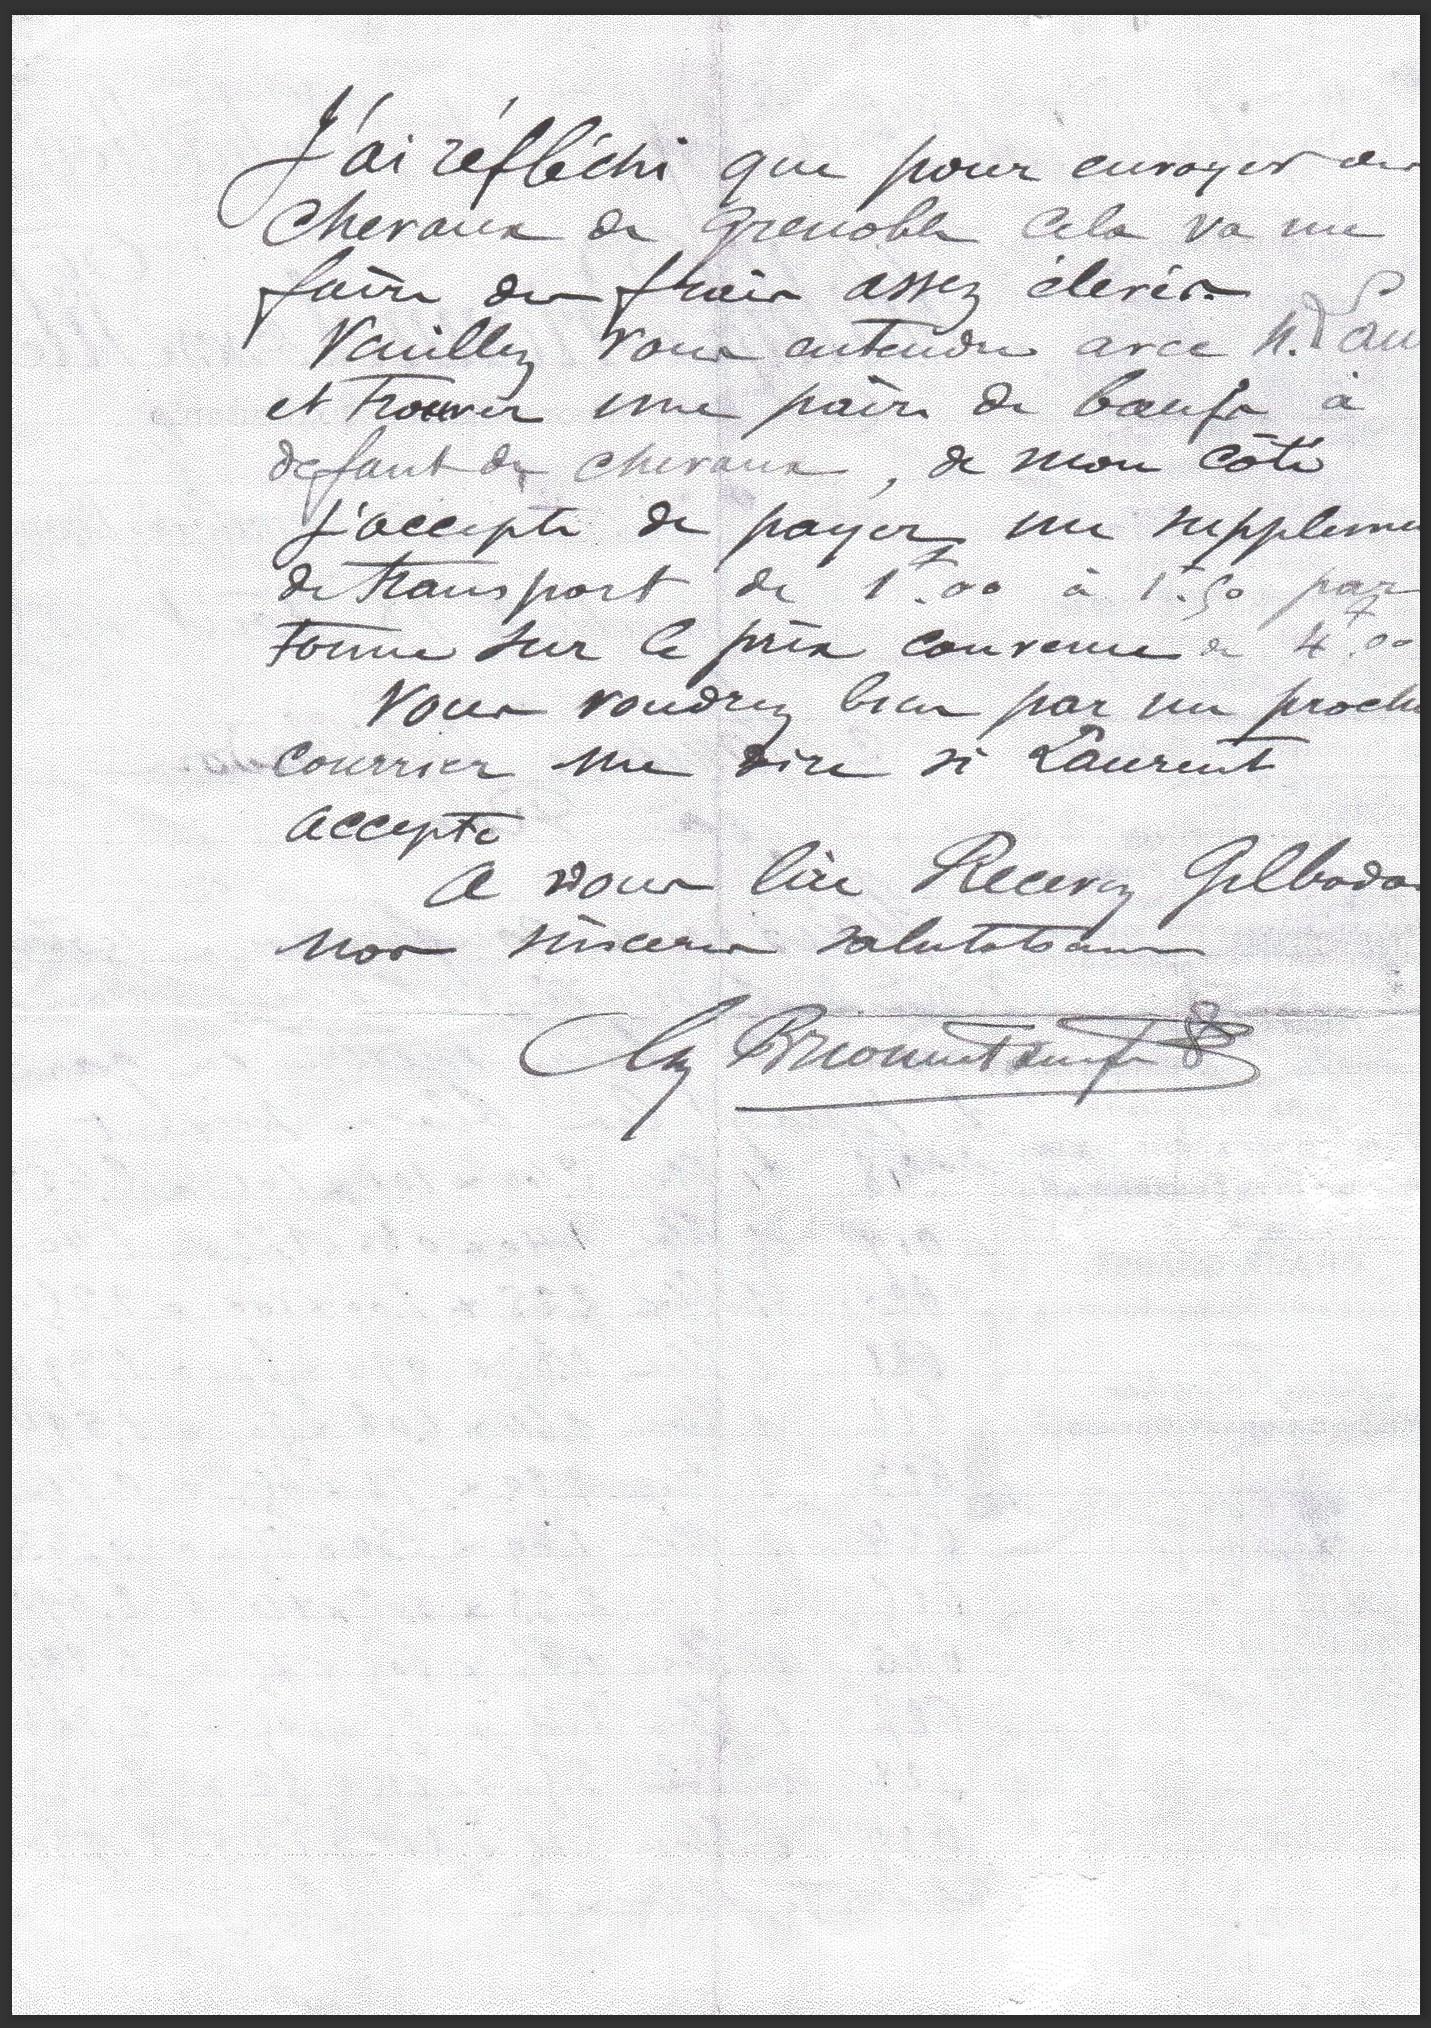 J'ai réfléchi que pour envoyer des
chevaux de Grenoble cela va me
faire des frais assez élevés.
Veuillez vous entendre avec M. Lau
et trouver une paire de boeufs à
défaut de chevaux, de mon côté
j'accepte de payer un suppleme
de transport de 1f.00 à 1f.50 par
tonne sur le prix convenu de 4f.00
Vous voudrez bien par un procha
courrier me dire si Laurent
accepte
A vous lire Recevez Gelbada
nos sincères salutations